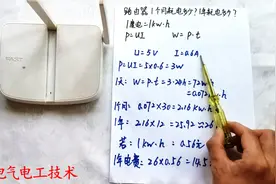 路由器1个月耗电多少？1年耗电多少？
1度电=1kw·h
P=UI W=P·t
U=5V I=0.6A
P=UI=5×0.6=3W
1天：W=P·t=3·24h=72w·h
=0.072kw·h
1个月：0.072×30=2.16kw·h
1年：2.16×12=25.92≈26
若：1kw·h=0.56元
1年电费：26×0.56=14.5
电气电工技术